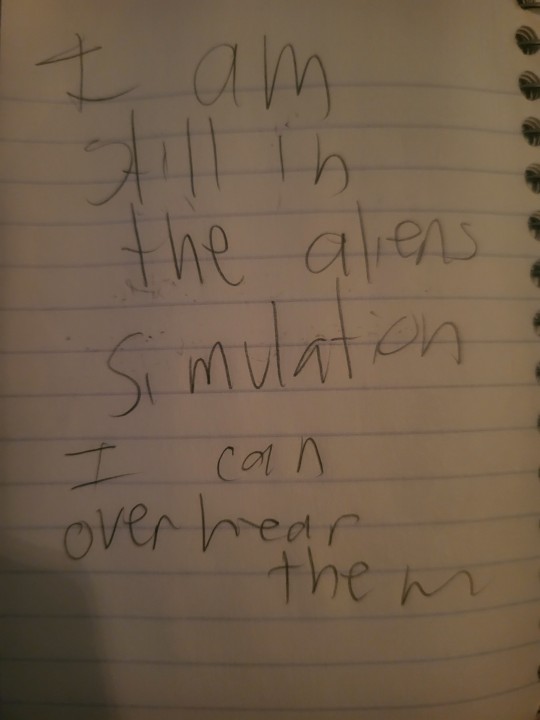 I am
still in
the aliens
simulation
I can
overhear
them